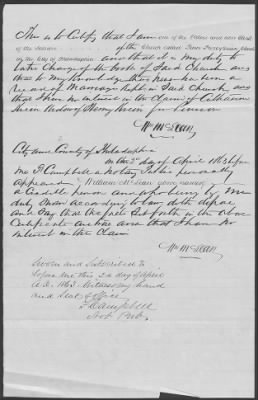 This is to Certify that I am one of the Elders and also Clerk
of the Session of the Church called Third Presbyterian Church
in the City of Philadelphia and that it is my duty to
take Charge of the books of Said Church and
that to my Knowledge there never has been a
record of Marriage Kept in Said Church and
that I have no interest in the Claim of Catharine
Green Widow of Henry Green for Pension
Wm McLean
City and County of Philadelphia
on the 2d day of April 1863 before
me F. Campbell a Notary Public personally
appeared William McLean above named
a Credible person and who being by me
duly sworn according to law doth depose
and Say that the facts Set forth in the above
Certificate are true and that I have no
interest in the Claim
Wm McLean
Sworn and Subscribed to
before me this 2d day of April
A.D. 1863. Witness my hand
and Seal of office
F. Campbell
Not. Pub.